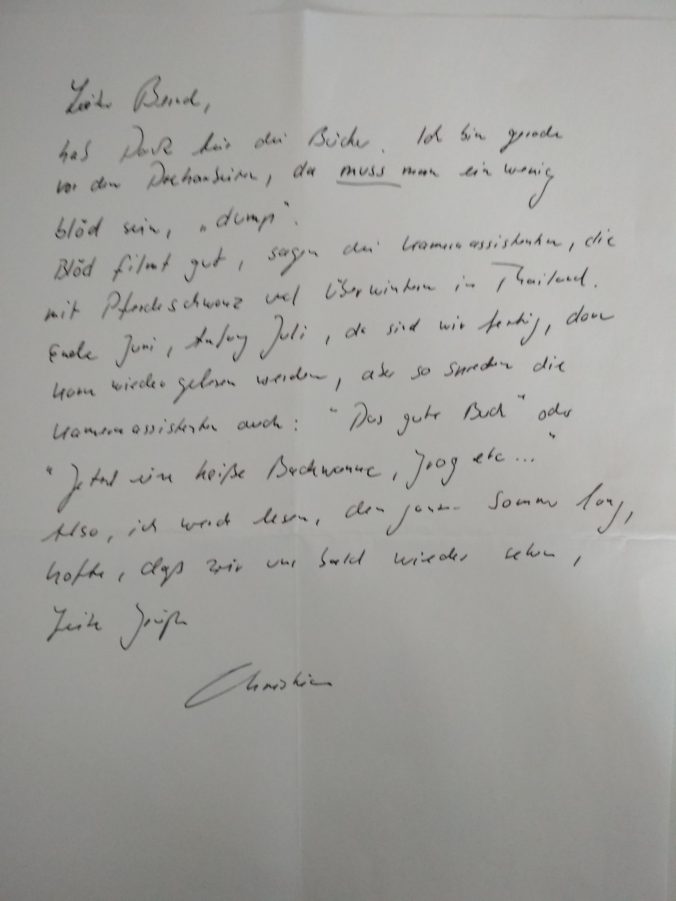 Lieber Bernd,
hab Dank für die Bücher. Ich bin gerade
vor den Dreharbeiten, da muss man ein wenig
blöd sein, „dump“.
Blöd filmt gut, sagen die Kameraassistenten, die
mit Pferdeschwanz und Überwintern in Thailand.
Ende Juni, Anfang Juli, da sind wir fertig, dann
kann wieder gelesen werden, aber so die
Kameraassistenten auch: "Das gute Buch" oder
"Jetzt eine heiße Badewanne, etc..."
Also, ich werde lesen, den ganzen Sommer lang,
hoffe, daß wir uns bald wieder sehen,
Liebe Grüße
Christian